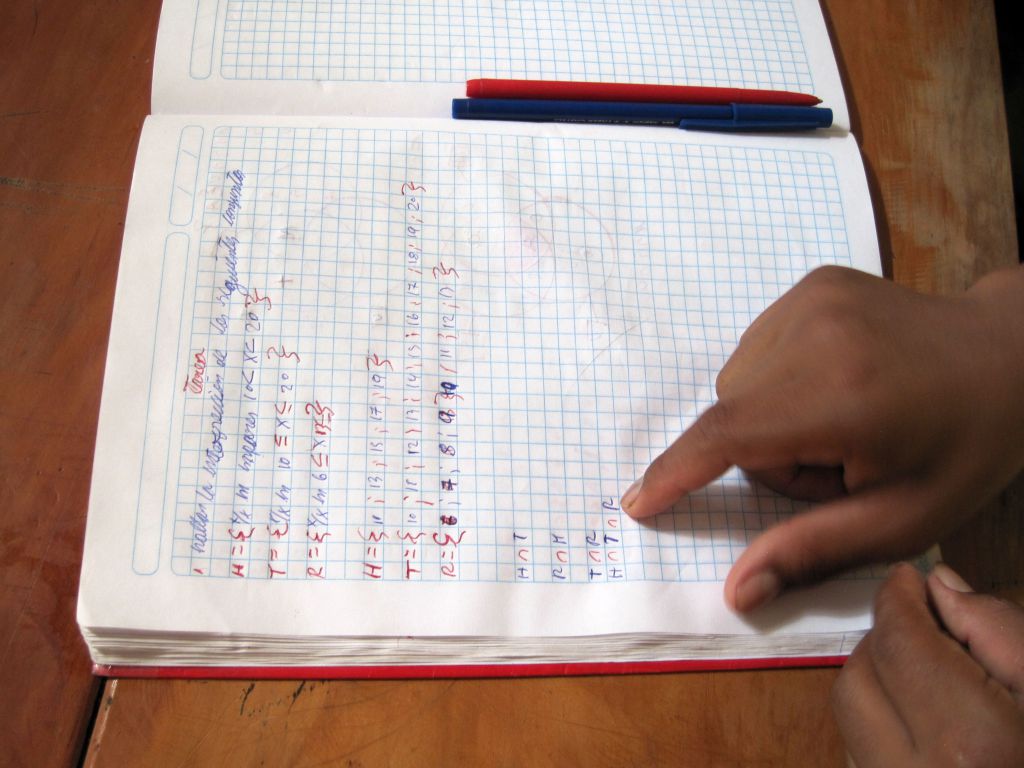 Tarea
Hallar la intersección de los siguientes conjuntos
H = { x/x m impares 10 < x ≤ 20 }
T = { x/x m 10 ≤ x ≤ 20 }
R = { x/x m 6 ≤ x
H = { 11 ; 13 ; 15 ; 17 ; 19 }
T = { 10 ; 11 ; 12 ; 13 ; 14 ; 15 ; 16 ; 17 ; 18 ; 19 ; 20 }
R = { 6 ; 7 ; 8 ; 9 ; 10 ; 11 ; 12 ; 17 }
H ∩ T
R ∩ H
T ∩ R
H ∩ T ∩ R